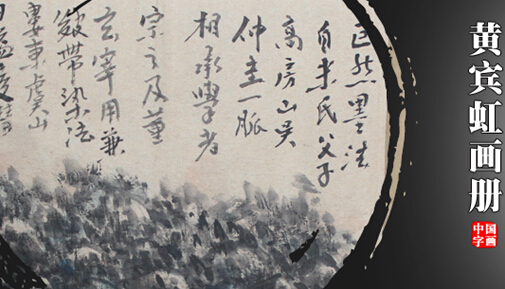 黄宾虹画册
中国
字画
巨然墨法
自米氏父子
高房山吴
仲圭一脈
相承學者
宗之及董
玄宰用兼
皴帶染法
婁東虞山